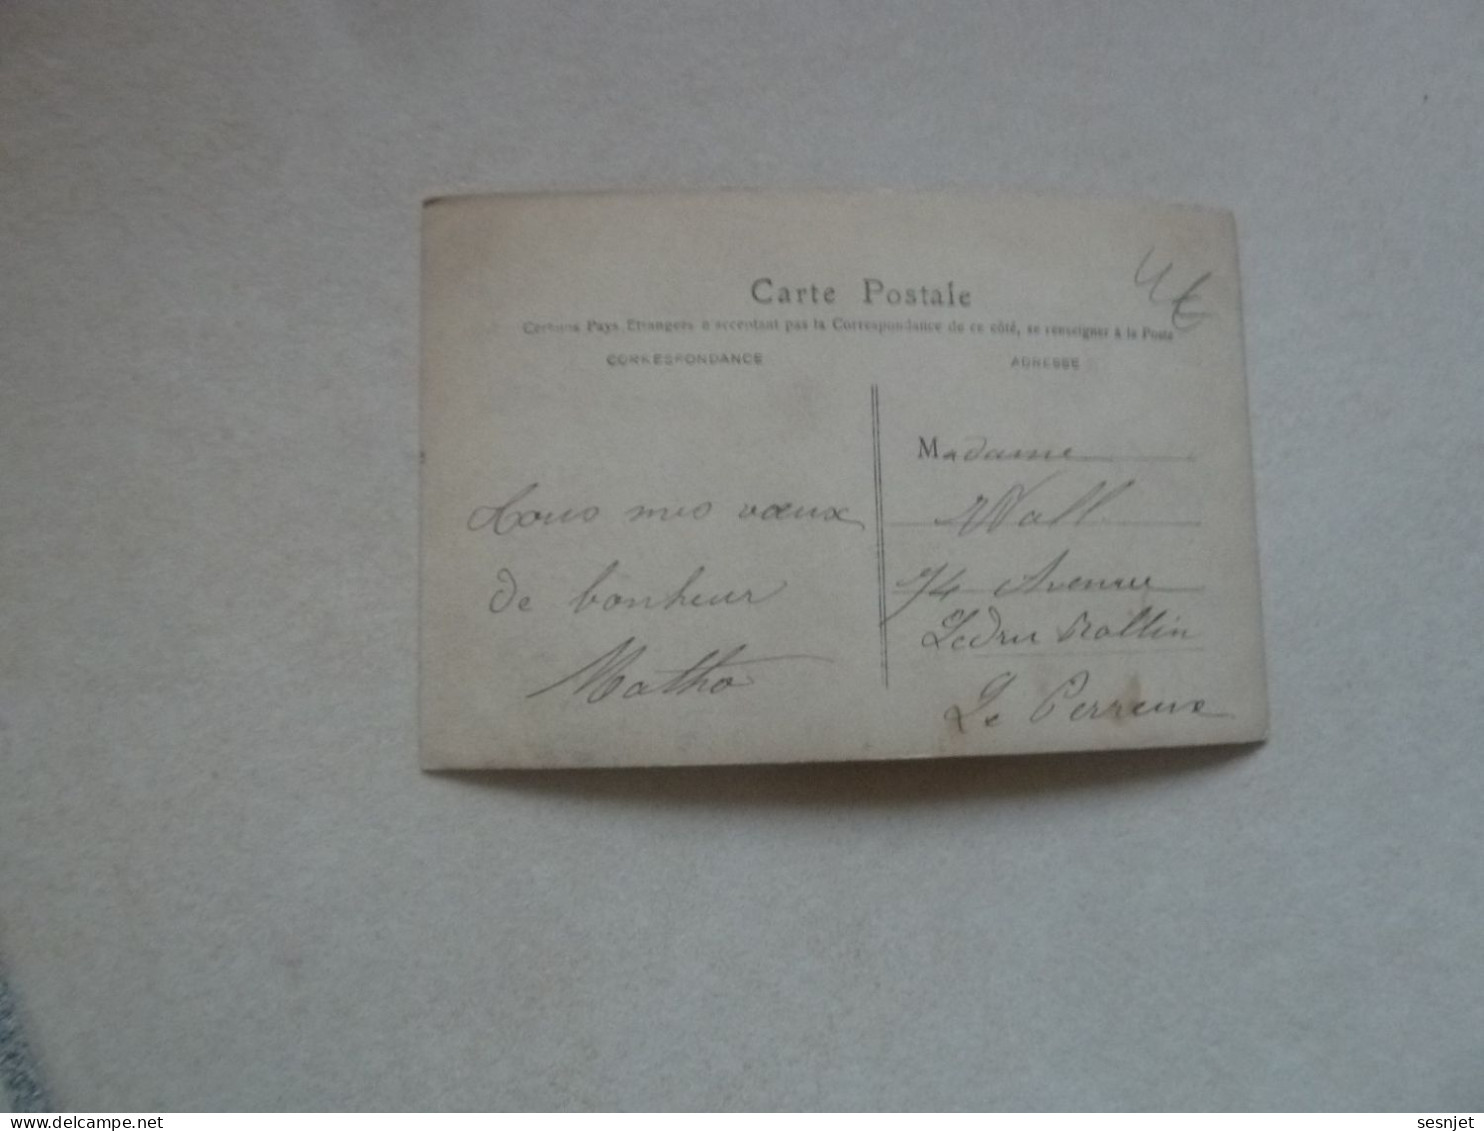 Carte Postale
Certains Pays Etrangers n'acceptant pas la Correspondance de ce côté, se renseigner à la Poste
CORRESPONDANCE
ADRESSE
Tous mes vœux
de bonheur
Matho
Madame
Wall
74 Avenue
Ledru Rollin
Le Perreux
sesnjet